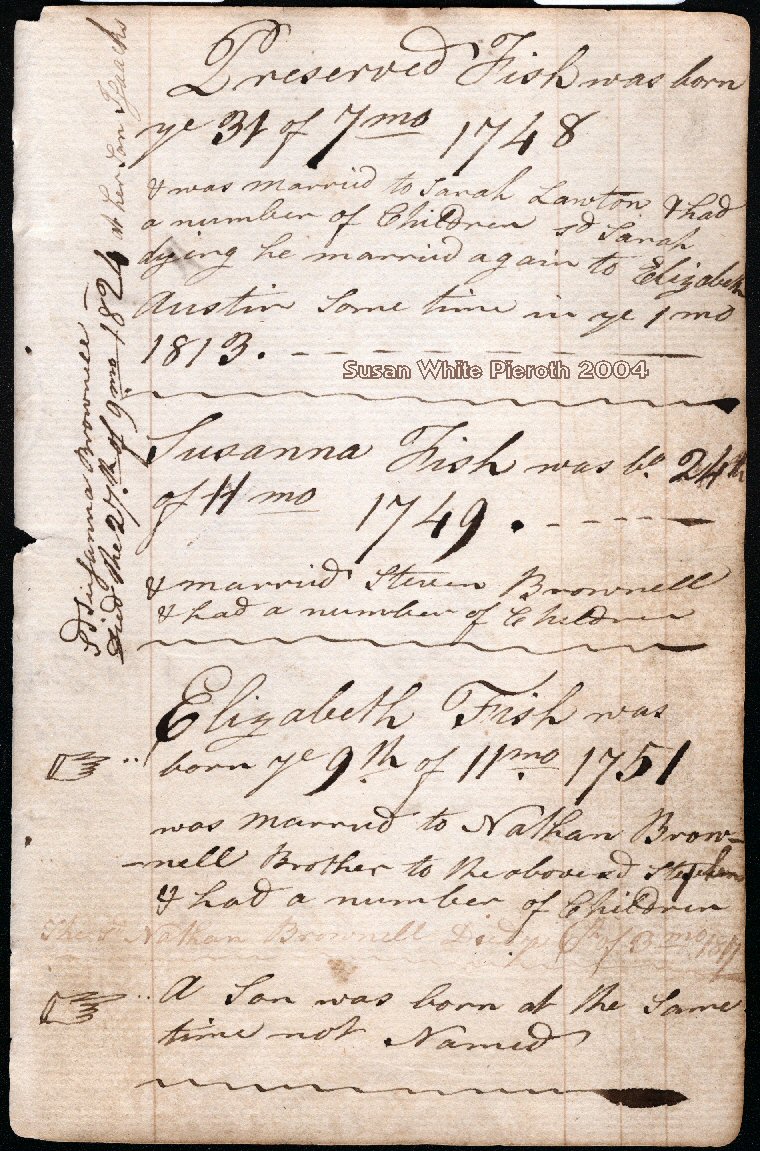 Preserved Fish was born
ye 31 of 7 mo 1748
& was married to Sarah Lawton & had
a number of Children sd Sarah
dying he married again to Elizabeth
Austin Some time in ye 1 mo
1813.
Susan White Pieroth 2004
Susanna Fish was bo 24th
of 11 mo 1749.
& married Steven Brownell
& had a number of Children
Sd Susanna Brownell
died the 27th of 9 mo 1824 at her Son Isaachs
Elizabeth Fish was
born ye 9th of 11 mo 1751
was married to Nathan Brow-
-nell Brother to the above sd Stephen
& had a number of Children
The sd Nathan Brownell Died ye of mo
A Son was born at the Same
time not Named